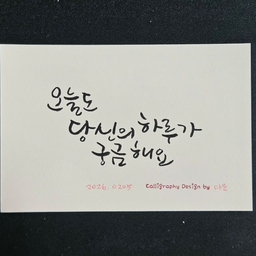 오늘도
당신의 하루가
궁금해요
Calligraphy Design by